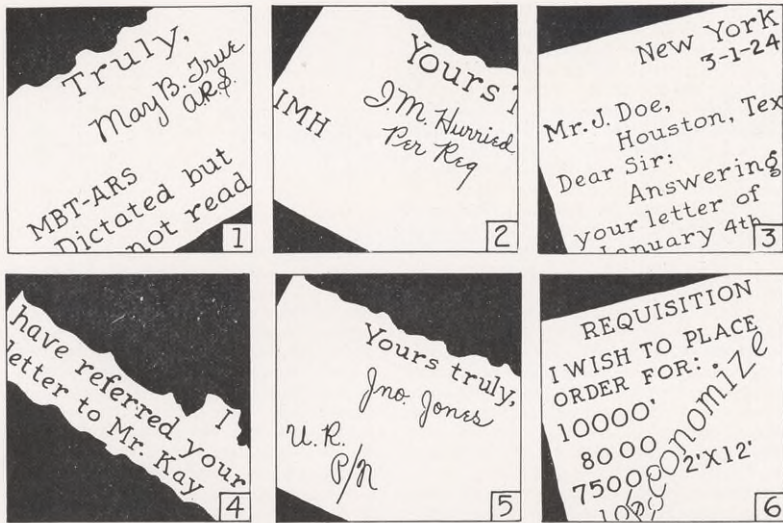 Truly,
May B. True
A.R.S.
MBT-ARS
Dictated but
not read
1
Yours T
J.M. Hurried
Per Req
IMH
2
New York
3-1-24
Mr. J. Doe,
Houston, Tex
Dear Sir:
Answering
your letter of
January 4th
3
I
have referred your
letter to Mr. Kay
4
Yours truly,
Jno. Jones
U.R.
P/N
5
REQUISITION
I WISH TO PLACE
ORDER FOR:
10000'
8000
7500
2'X12'
economize
6